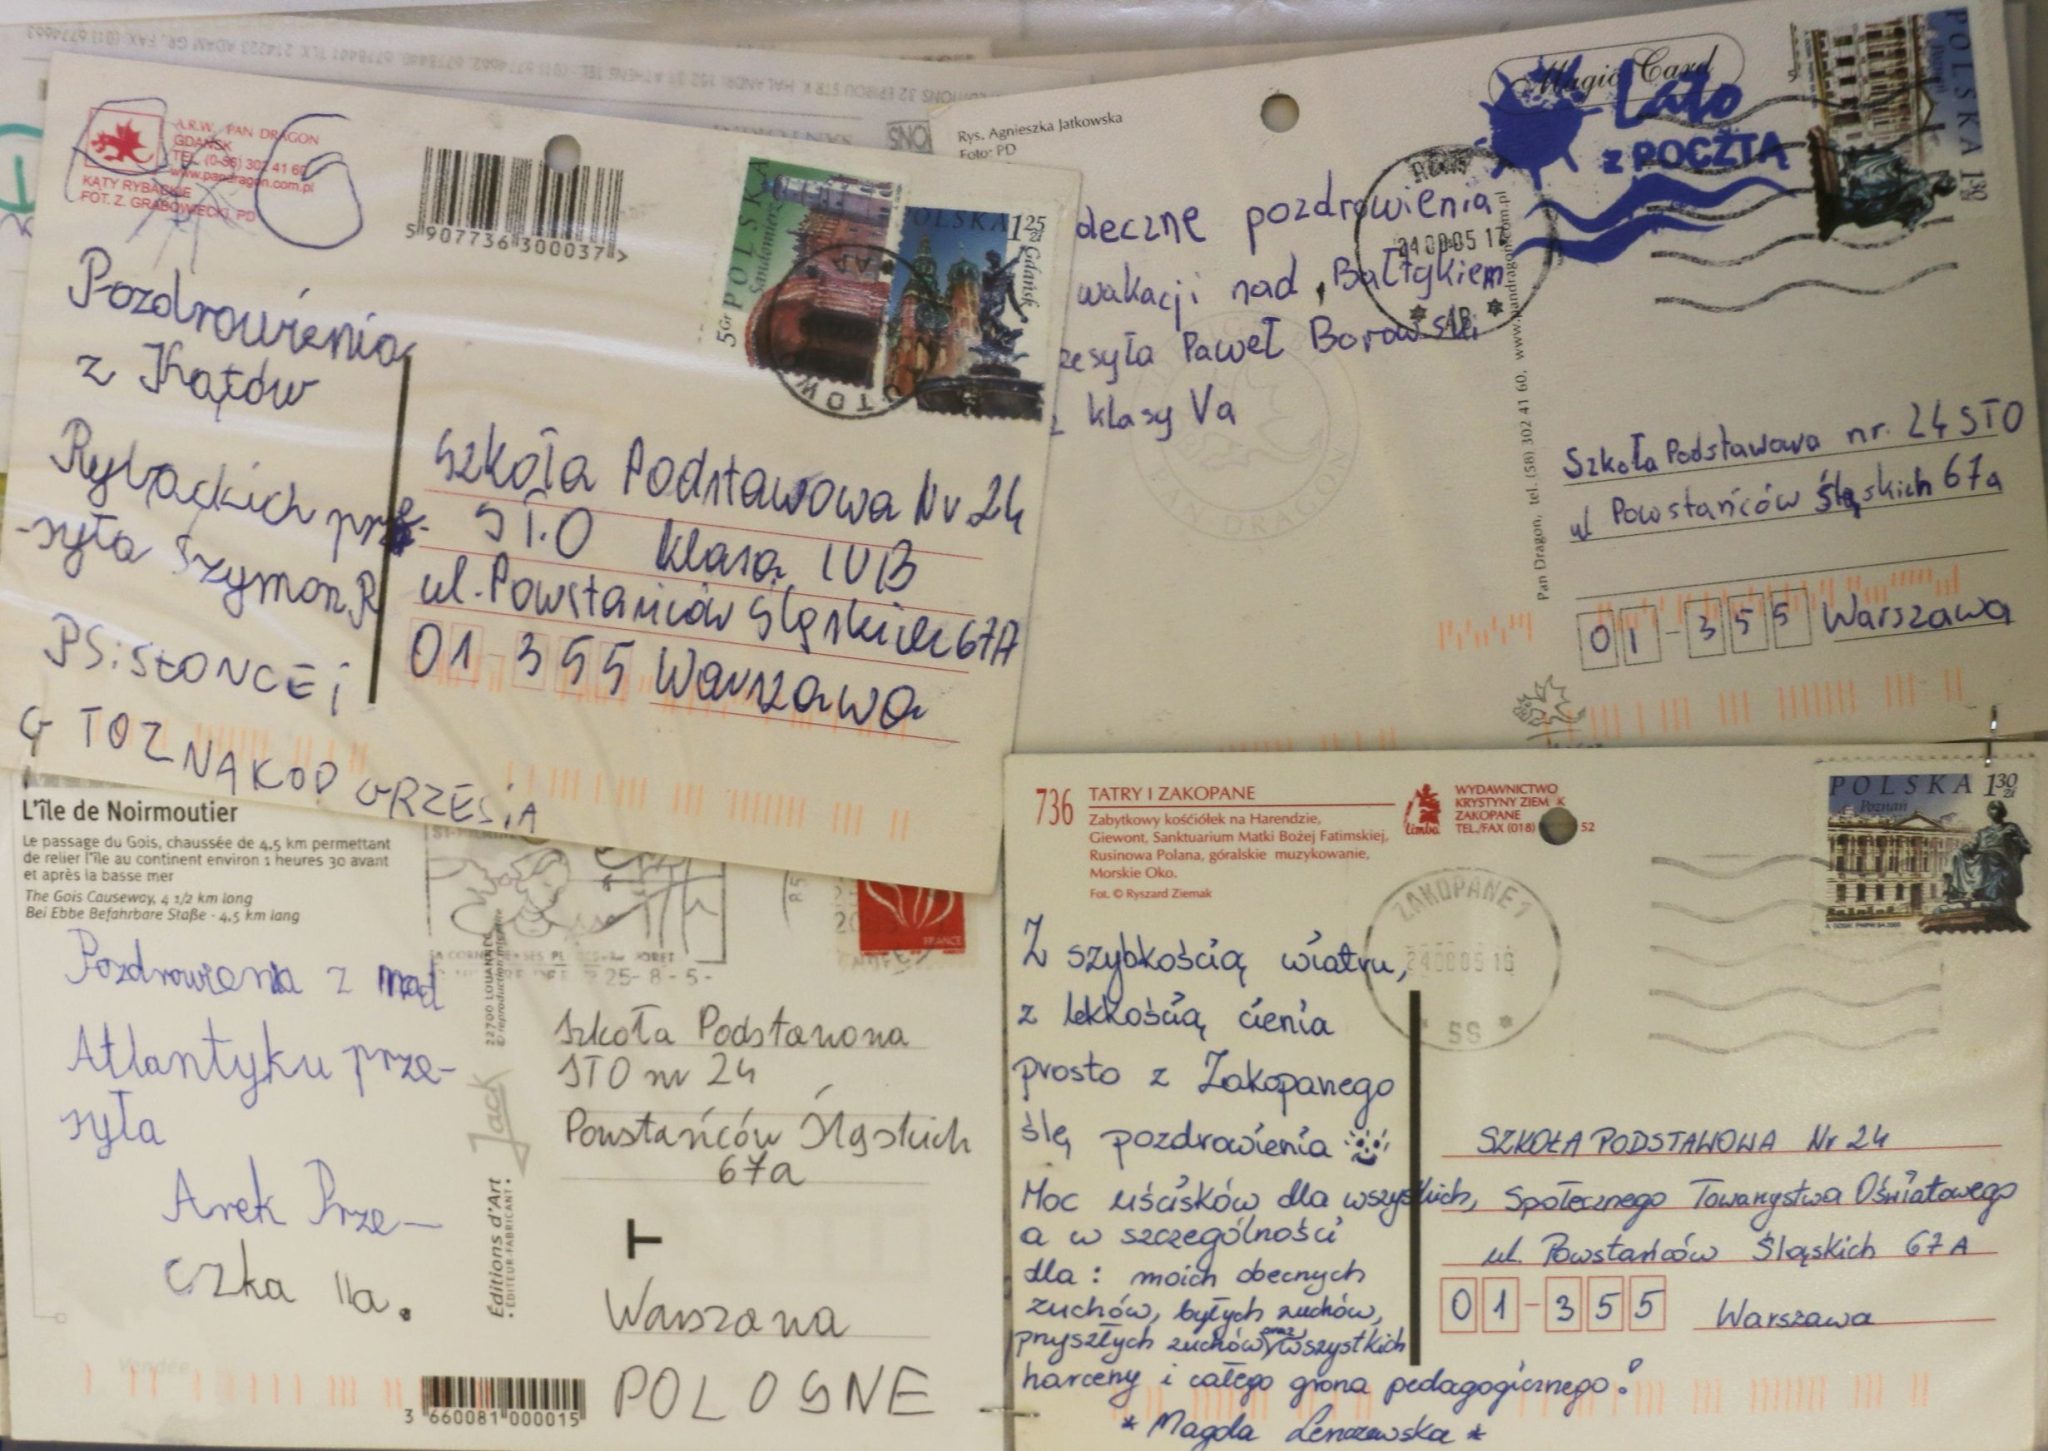 A.R.W. PAN DRAGON
GDAŃSK
TEL. (0-58) 302 41 60
www.pandragon.com.pl
KĄTY RYBACKIE
FOT. Z. GRABOWIECKI, PD
5 907736 300037 >
POLSKA
Sandomierz
5 Gr
POLSKA 1,25 zł
Gdańsk
Pozdrowienia
z Kątów
Rybackich prze-
-syła Szymon R
PS: SŁOŃCE i
G TO ZNAK OD GRZESIA
Szkoła Podstawowa Nr 24
STO klasa IVB
ul. Powstańców Śląskich 67A
01-355 Warszawa
Rys. Agnieszka Jatkowska
Foto: PD
Magic Card
Lato
z POCZTĄ
POLSKA 1,30 zł
deczne pozdrowienia
wakacji nad Bałtykiem
zesyła Paweł Borowski
z klasy Va
PAN DRAGON
Pan Dragon, tel. (58) 302 41 60, www.pandragon.com.pl
Szkoła Podstawowa nr. 24 STO
ul Powstańców Śląskich 67a
01-355 Warszawa
L'île de Noirmoutier
Le passage du Gois, chaussée de 4,5 km permettant
de relier l'île au continent environ 1 heures 30 avant
et après la basse mer
The Gois Causeway, 4 1/2 km long
Bei Ebbe Befahrbare Staße - 4,5 km lang
25-8-5-
FRANCE
Pozdrowienia z nad
Atlantyku prze-
syła
Arek Prze-
czka IIa.
22700 LOUANNEC
© reproduction interdite
Jack
Éditions d'Art
ÉDITEUR-FABRICANT
Szkoła Podstawowa
STO nr 24
Powstańców Śląskich
67a
T
Warszawa
POLOGNE
Vendée
3 660081 000015
736 TATRY I ZAKOPANE
Zabytkowy kośćiółek na Harendzie,
Giewont, Sanktuarium Matki Bożej Fatimskiej,
Rusinowa Polana, góralskie muzykowanie,
Morskie Oko.
Fot. © Ryszard Ziemak
limba
WYDAWNICTWO
KRYSTYNY ZIEM K
ZAKOPANE
TEL./FAX (018) 52
ZAKOPANE 1
SS
POLSKA 1,30 zł
Poznań
Z szybkością wiatru,
z lekkością cienia
prosto z Zakopanego
ślę pozdrowienia
Moc uścisków dla wszystkich,
a w szczególności
dla: moich obecnych
zuchów, byłych zuchów,
przyszłych zuchów oraz wszystkich
harcerzy i całego grona pedagogicznego!
* Magda Lenczewska *
SZKOŁA PODSTAWOWA Nr 24
Społecznego Towarzystwa Oświatowego
ul. Powstańców Śląskich 67A
01-355 Warszawa